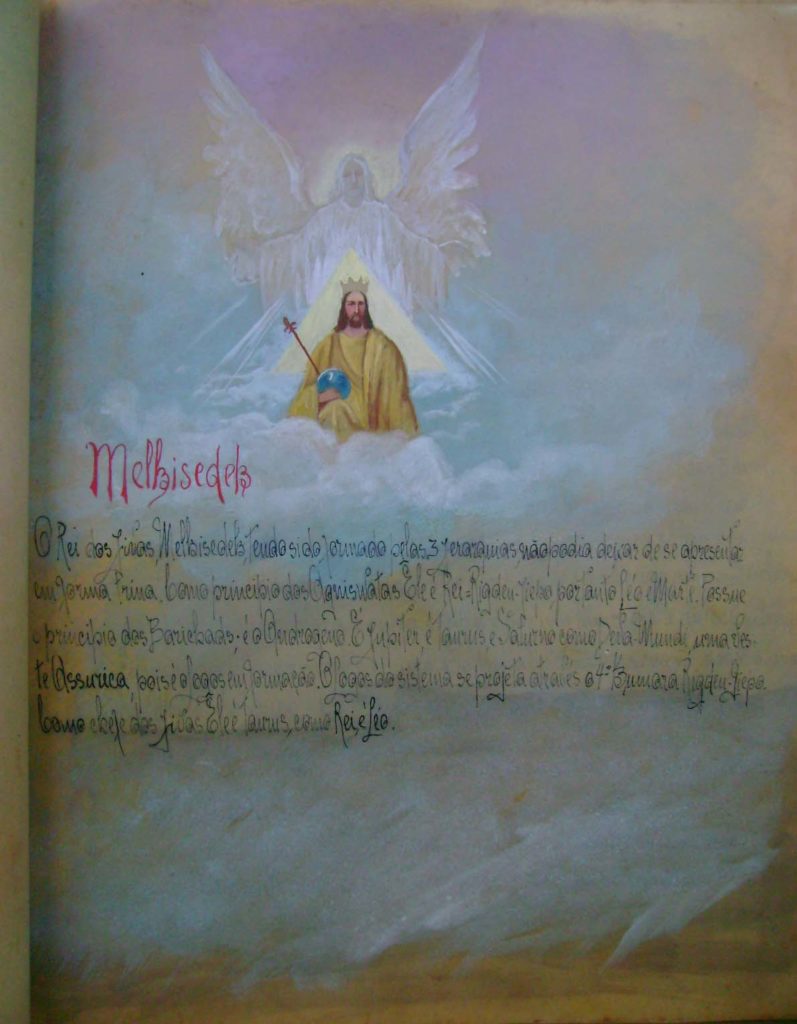 Melkisedek
O Rei dos Jivas, Melkisedek, tendo sido formado pelas 3 Jerarquias não podia deixar de se apresentar
em forma Trina. Como princípio dos Agnisvatas Ele é Rei=Rigden-Jiepo portanto Léo e Marte. Possue
o princípio dos Barishads · é o Andrógeno. É Jupiter, é Taurus, e Saturno como Jeba-Mundi, uma ves-
te Assurica, pois é o Logos em formação. O Logos do sistema se projeta através o 4º Kumara Rigden-Jiepo.
Como chefe dos Jivas Ele é Taurus, como Rei, é Léo.